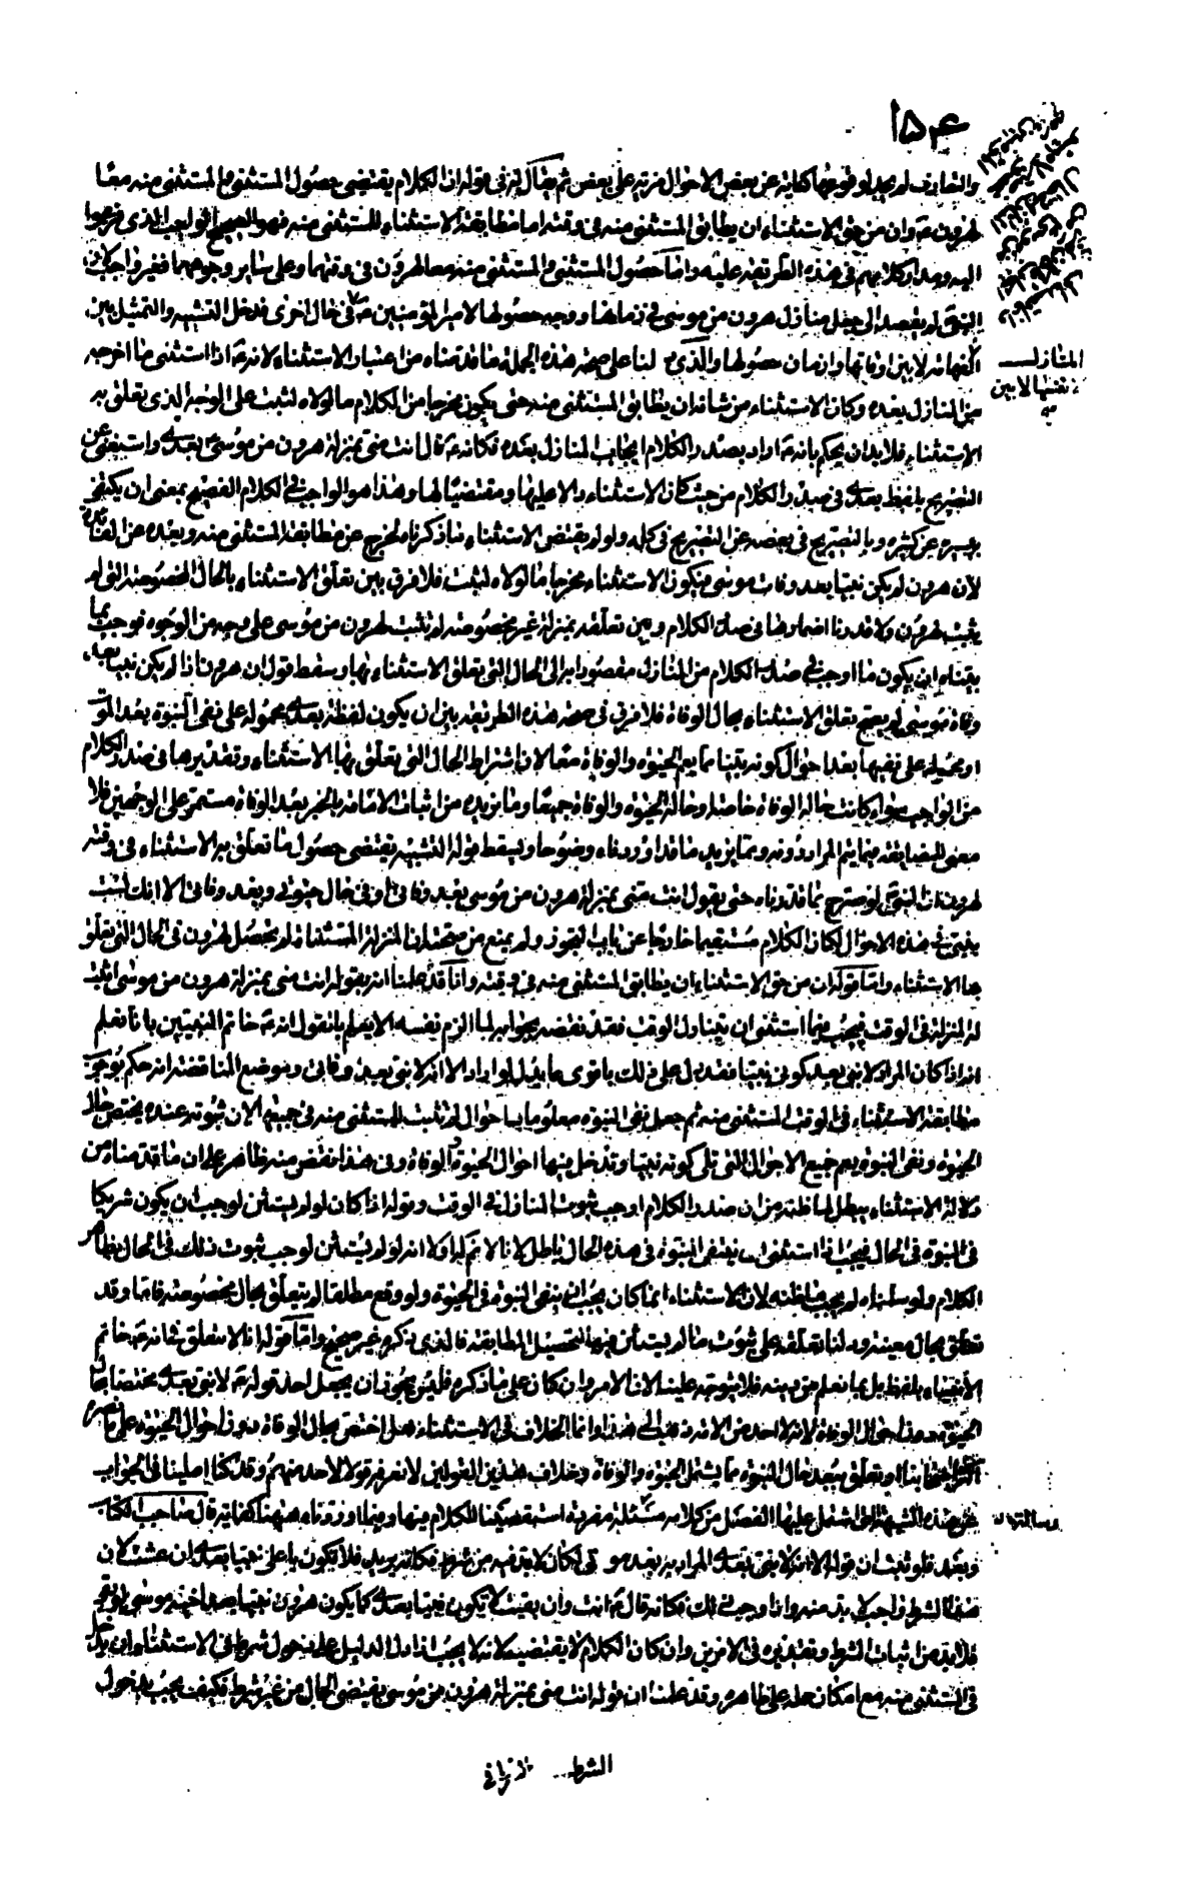 ١٥٤
والتعارف لم يجد لوقوعها كناية عن بعض الاحوال مزية على بعض ثم يقال له في قوله ان الكلام يقتضي حصول المستثنى والمستثنى منه معا
لهرون وان من حق الاستثناء ان يطابق المستثنى منه في وقته اما مطابقة الاستثناء للمستثنى منه فهو الصحيح الواجب الذي
في هذه الطريقة عليه واما حصول المستثنى والمستثنى منه معا لهرون في وقتهما وعلى سائر وجوههما فغير واجب
النبي لم يقصد الى جعل منازل هرون من موسى في زمانها ووجه حصولها لامير المؤمنين ع في حال اخرى فدخل التشبيه والتمثيل بين
المنازل
نفسها لا بين
لا بين اوقاتها وازمان حصولها والذي لنا على صحة هذه الجملة ما قدمناه من اعتبار الاستثناء لانه ع اذا استثنى ما اخرجه
من المنازل بعده وكان الاستثناء من شانه ان يطابق المستثنى منه حتى يكون مخرجا من الكلام ما لولاه لثبت على الوجه الذي تعلق به
الاستثناء فلا بد ان يحكم بانه ع اراد بصدر الكلام ايجاب المنازل بعده فكانه ع قال انت مني بمنزلة هرون من موسى بعدي واستغنى عن
التصريح بلفظ بعدي في صدر الكلام من حيث كان الاستثناء دالا عليها ومقتضيا لها وهذا هو الواجب في الكلام الفصيح بمعنى ان يكتفي
بيسيره عن كثيره وبالتصريح في بعضه عن التصريح في كله ولو لم يقتض الاستثناء ما ذكرناه لخرج عن مطابقة المستثنى منه وبعده عن
لان هرون لم يكن نبيا بعد وفات موسى فيكون الاستثناء مخرجا ما لولاه لثبت فلا فرق بين تعلق الاستثناء بالحال المخصوصة التي لم
يثبت لهرون ولا قدرنا اضمارها في صدر الكلام وبين تعلقه بمنزلة غير مخصوصة لم تثبت لهرون من موسى على وجه من الوجوه فوجب بما
بيناه ان يكون ما اوجب في صدر الكلام من المنازل مقصودا به الى الحال التي تعلق الاستثناء بها وسقط قول ان هرون اذا لم يكن نبيا بعد
وفاة موسى لم يصح تعلق الاستثناء بحال الوفاة فلا فرق في صحة هذه الطريقة بين ان يكون لفظة بعدي محمولة على نفي النبوة بعد الموت
او محمولة على نفيها بعد احوال كونه نبيا مما يعم الحيوة والوفاة معا لان اشتراط الحال التي تعلق بها الاستثناء وتقديرها في صدر الكلام
من الواجب سواء كانت حالة الوفاة خاصة او حالة الحيوة والوفاة جميعا وما نريده من اثبات الامامة بالخبر بعد الوفاة مستمر على الوجهين فلا
معنى للمضايقة فيما يتم المراد دونه ومما يزيد ما قدمناه وضوحا ويسقط قوله التشبيه يقتضي حصول ما تعلق به الاستثناء في وقته
لهرون ان النبي لو صرح بما قدرناه حتى يقول انت مني بمنزلة هرون من موسى بعد وفاتي او في حال حيوتي وبعد وفاتي الا انك لست
بنبي في هذه الاحوال لكان الكلام مستقيما خارجا عن باب التجوز ولم يمنع من صحته ان المنزلة المستثناة لم تحصل لهرون في الحال التي تعلق
بها الاستثناء واما قوله ان من حق الاستثناء ان يطابق المستثنى منه في وقته وانا قد علمنا انه بقوله انت مني بمنزلة هرون من موسى اثبت
له المنزلة في الوقت فيجب فيما استثنى ان يتناول الوقت فقد نقضه بجوابه لما الزم نفسه الا يعلم بانه نقول انه ع خاتم النبيين بان نعلم
انه اذا كان المراد لا نبي بعد كوني نبيا فقد دل على ذلك باقوى ما يدل لو اراد الا انه لا نبي بعد وفاتي وموضع المناقضة انه حكم بوجوب
مطابقة الاستثناء في الوقت للمستثنى منه ثم جعل نفي النبوة معلوما باحوال لم تثبت للمستثنى منه في جميعها لان ثبوته عنده يختص حال
الحيوة ونفي النبوة يعم جميع الاحوال التي تلي كونه نبيا وتدخل فيها احوال الحيوة والوفاة وفي هذا نقض منه ظاهر على ان ما قدمناه من
دلالة الاستثناء يبطل ما ظنه من ان صدر الكلام اوجب ثبوت المنازل في الوقت وقوله اذا كان لو لم يستثن لوجب ان يكون شريكا
في النبوة في الحال فيجب اذا استثنى ان ينتفي النبوة في هذه الحال باطل لانا لا نسلم له اولا انه لو لم يستثن لوجب ثبوت ذلك في الحال بظاهر
الكلام ولو سلمناه لم يجب ما ظنه لان الاستثناء انما كان يجب ان ينفي النبوة في الحيوة ولو وقع مطلقا لم يتعلق بحال مخصوصة فاما وقد
تعلق بحال معينة ودلنا تعلقه على ثبوت ما لم يستثن فيها لتحصيل المطابقة فالذي ذكره غير صحيح واما قوله انا لا نتعلق في انه ع خاتم
الانبياء بلفظ بل بما نعلم من دينه فلا يتوجه علينا لان الامر وان كان على ما ذكره فليس يجوز ان يجعل احد قوله ع لا نبي بعدي مختصا بحال
الحيوة دون احوال الوفاة لانه لا احد من الامة ذهب الى هذا وانما الخلاف في الاستثناء هل اختص بحال الوفاة بدون احوال الحيوة على
اصحابنا او تعلق ببعد حال النبوة مما يشتمل الحيوة والوفاة وخلاف هذين القولين لا نعرفه قولا لاحد منهم وقد كنا املينا في الجواب
عن هذه الشبهة التي اشتمل عليها الفصل من كلامه مسئلة مفردة استقصينا الكلام فيها وفيما اوردناه ههنا كفاية قال صاحب الكتاب
وبعد فلو ثبت ان قوله الا انه لا نبي بعدي المراد به بعد موتي لكان لا بد فيه من شرط فكانه يريد فلا تكون يا علي نبيا بعدي ان عشت لان
هذا الشرط واجب لا بد منه واذا وجب ذلك فكانه قال ع انت وان بقيت لا تكون نبيا بعدي كما يكون هرون نبيا بعد اخيه موسى لو بقي
فلا بد من اثبات الشرط وتقديره في الامرين وان كان الكلام لا يقتضيه لانه لا يجب اذا دل الدليل على دخول شرط في الاستثناء ان يدخل
في المستثنى منه مع امكان حمله على ظاهره وقد علمت ان قوله انت مني بمنزلة هرون من موسى يقتضي الحال من غير شرط فكيف يجب بدخول
الشرط